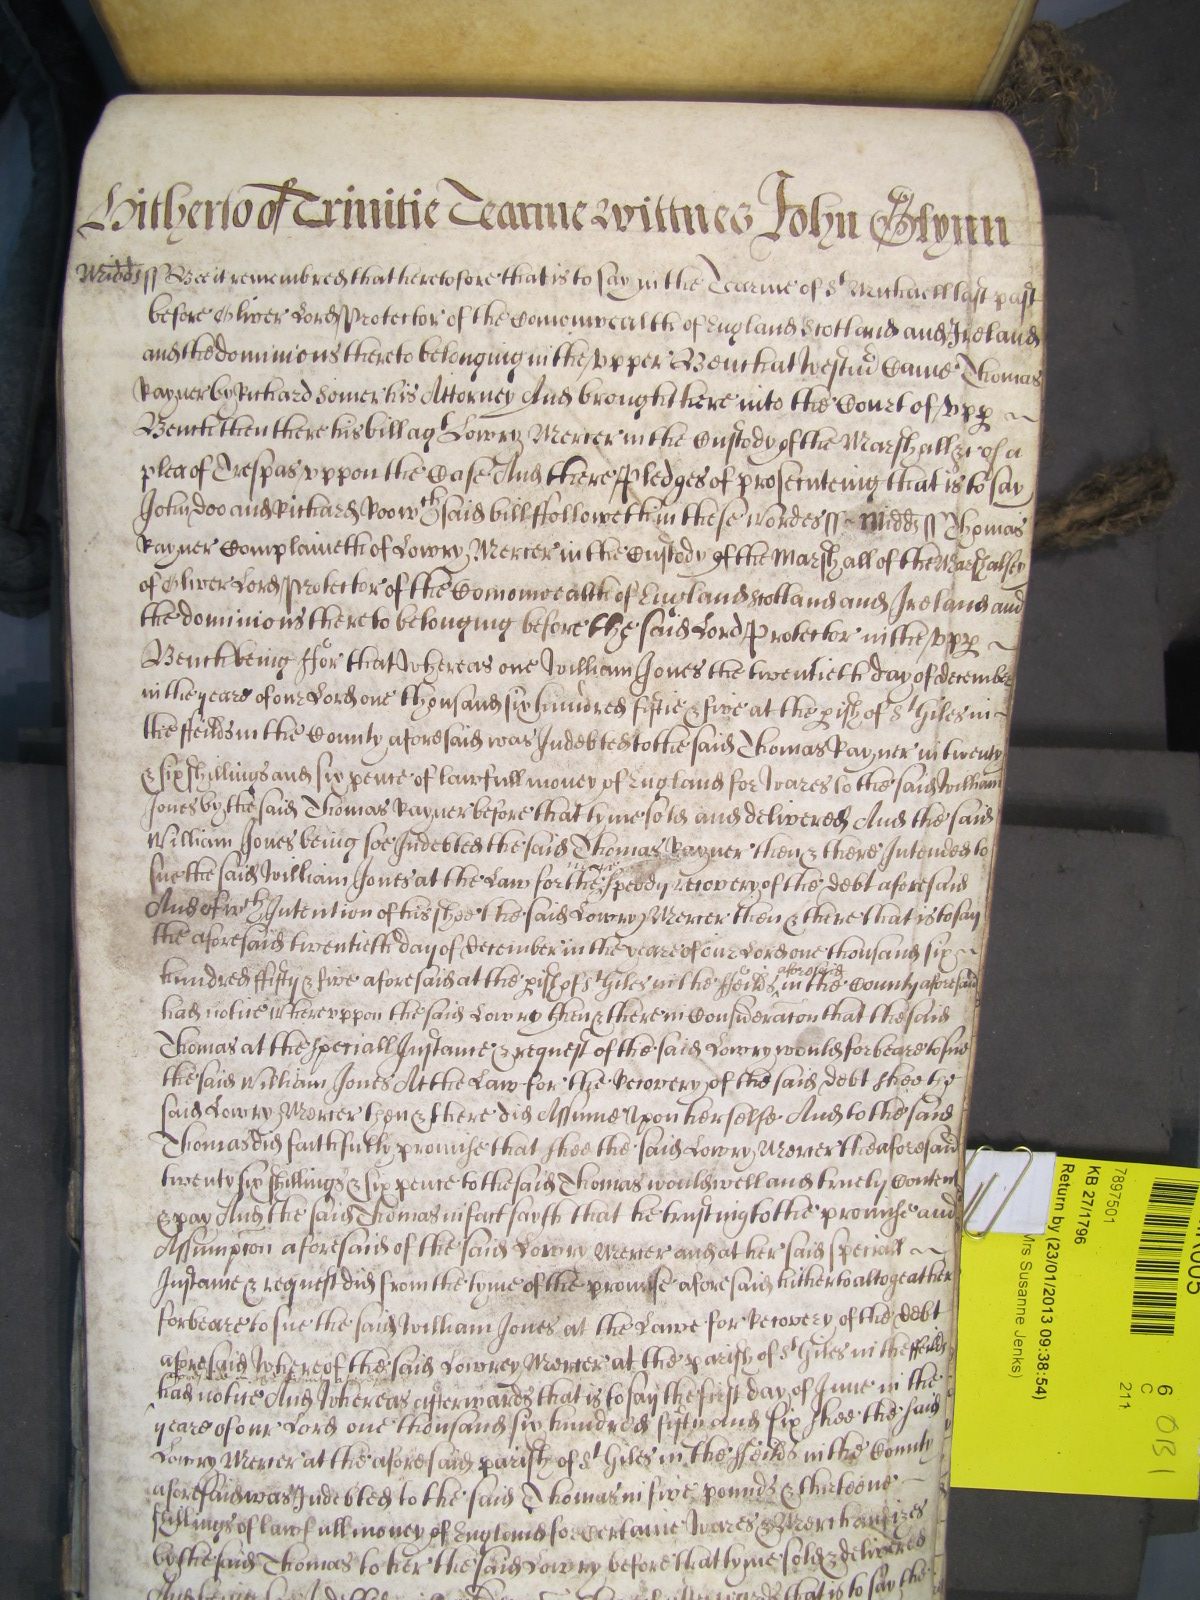 Hitherto of Trinitie Tearme wittnes John Glynn
Midds ss Bee it remembred that heretofore that is to say in the Tearme of St Michaell last past
before Oliver Lord Protector of the Comonwealth of England Scotland and Ireland
and the dominions thereto belonging in the upper Bench at Westmr Came Thomas
Rayner by Richard Homer his Attorney And brought here into the Court of upp
Bench then there his bill agt Lowry Mercer in the Custody of the Marshall &c of a
plea of Trespas uppon the Case And there Pledges of prosecuteing that is to say
John doo and Richard Roo wch said bill followeth in these wordes ss Midds ss Thomas
Rayner Complaineth of Lowry Mercer in the Custody of the Marshall of the Marshalsey
of Oliver Lord Protector of the Comonwealth of England Scotland and Ireland and
the dominions thereto belonging before the said Lord Protector in the upp
Bench being For that Whereas one William Jones the twentieth day of december
in the yeare of our Lord one thousand six hundred fiftie & five at the pish of St Giles in
the ffeilds in the County aforesaid was Indebted to the said Thomas Rayner in twenty
& six shillings and six pence of lawfull money of England for Wares to the said William
Jones by the said Thomas Rayner before that tyme sold and delivered And the said
William Jones being soe Indebted the said Thomas Rayner then & there Intended to
sue the said William Jones at the Law for the speedy recovery of the debt aforesaid
And of wch Intention of his shee the said Lowry Mercer then & there that is to say
the aforesaid twentieth day of december in the yeare of our Lord one thousand six
hundred fifty & five aforesaid at the pish of St Giles in the ffeilds aforesaid in the County aforesaid
had notice Whereuppon the said Lowry then & there in Consideracon that the said
Thomas at the speciall Instance & request of the said Lowry would forbeare to sue
the said William Jones At the Law for the Recovery of the said debt shee the
said Lowry Mercer then & there did Assume upon herselfe And to the said
Thomas did faithfully promise that shee the said Lowry Mercer the aforesaid
twenty six shillings & six pence to the said Thomas would well and truely Content
& pay And the said Thomas in fact sayth that he trusting to the promise and
Assumption aforesaid of the said Lowry Mercer and at her said speciall
Instance & request did from the tyme of the promise aforesaid hitherto altogeather
forbeare to sue the said William Jones at the Lawe for Recovery of the debt
aforesaid Whereof the said Lowrey Mercer at the parish of St Giles in the ffeilds
had notice And Whereas afterwards that is to say the first day of June in the
yeare of our Lord one thousand six hundred fifty and six shee the said
Lowry Mercer at the aforesaid parish of St Giles in the ffeilds in the County
aforesaid was Indebted to the said Thomas in five pounds & thirteene
shillings of lawfull money of England for Certaine Wares & Merchandizes
by the said Thomas to her the said Lowry before that tyme sold & delivered
that is to say the
7897501
KB 27/1796
Return by (23/01/2013 09:38:54)
Mrs Susanne Jenks)
R005
6
C
211